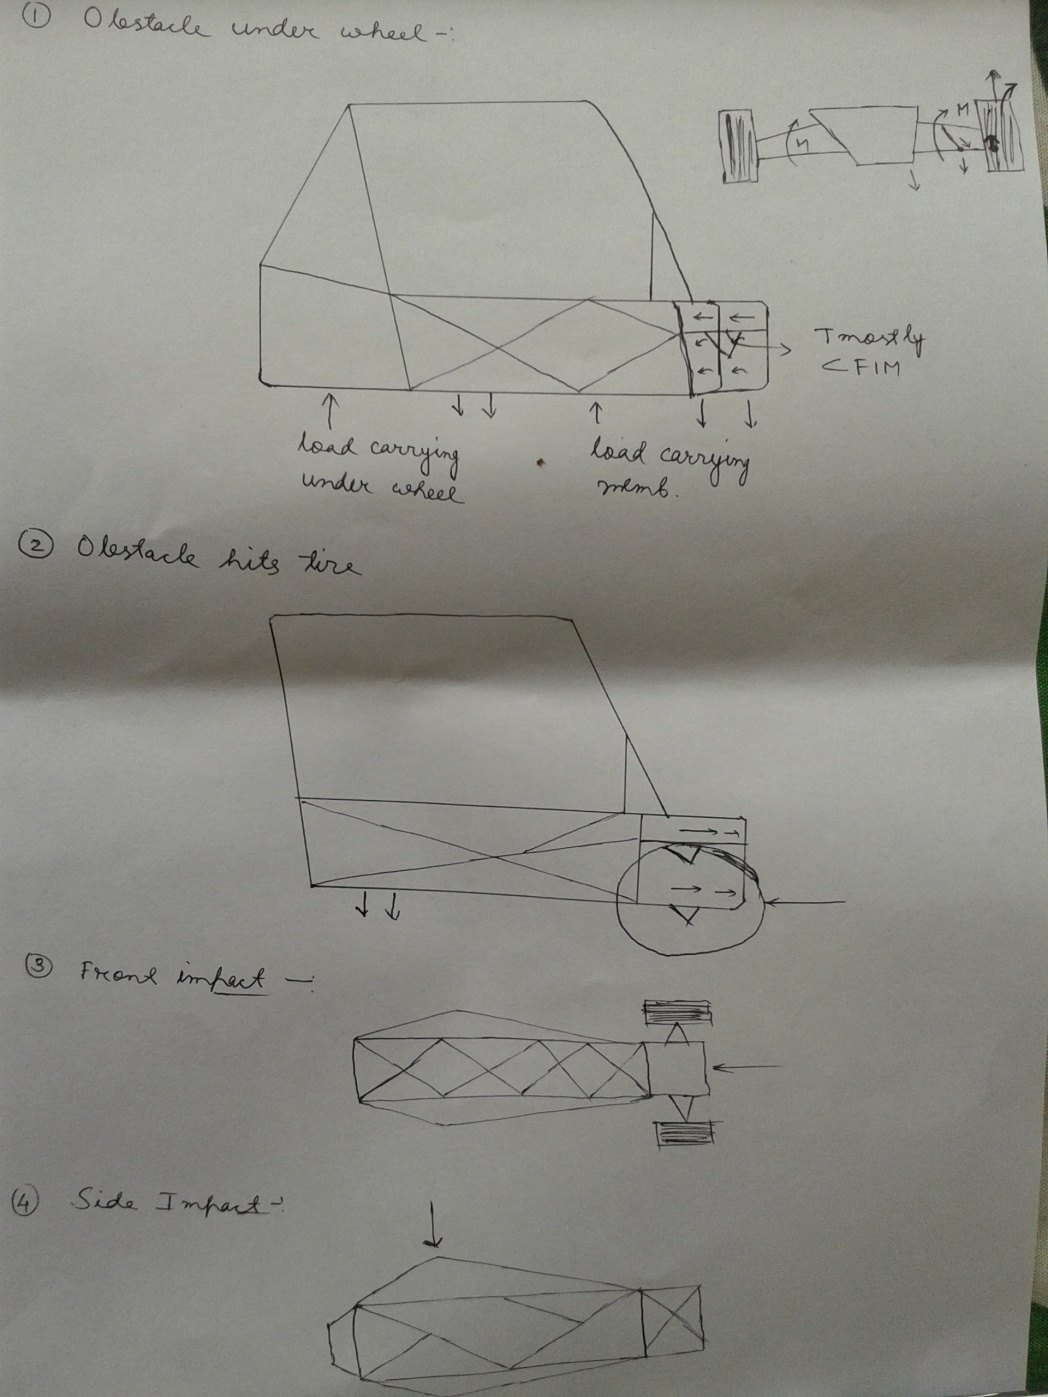 ① Obstacle under wheel -:
M
M
T mostly
CFIM
load carrying
under wheel
load carrying
memb.
② Obstacle hits tire
③ Front impact -:
④ Side Impact -: